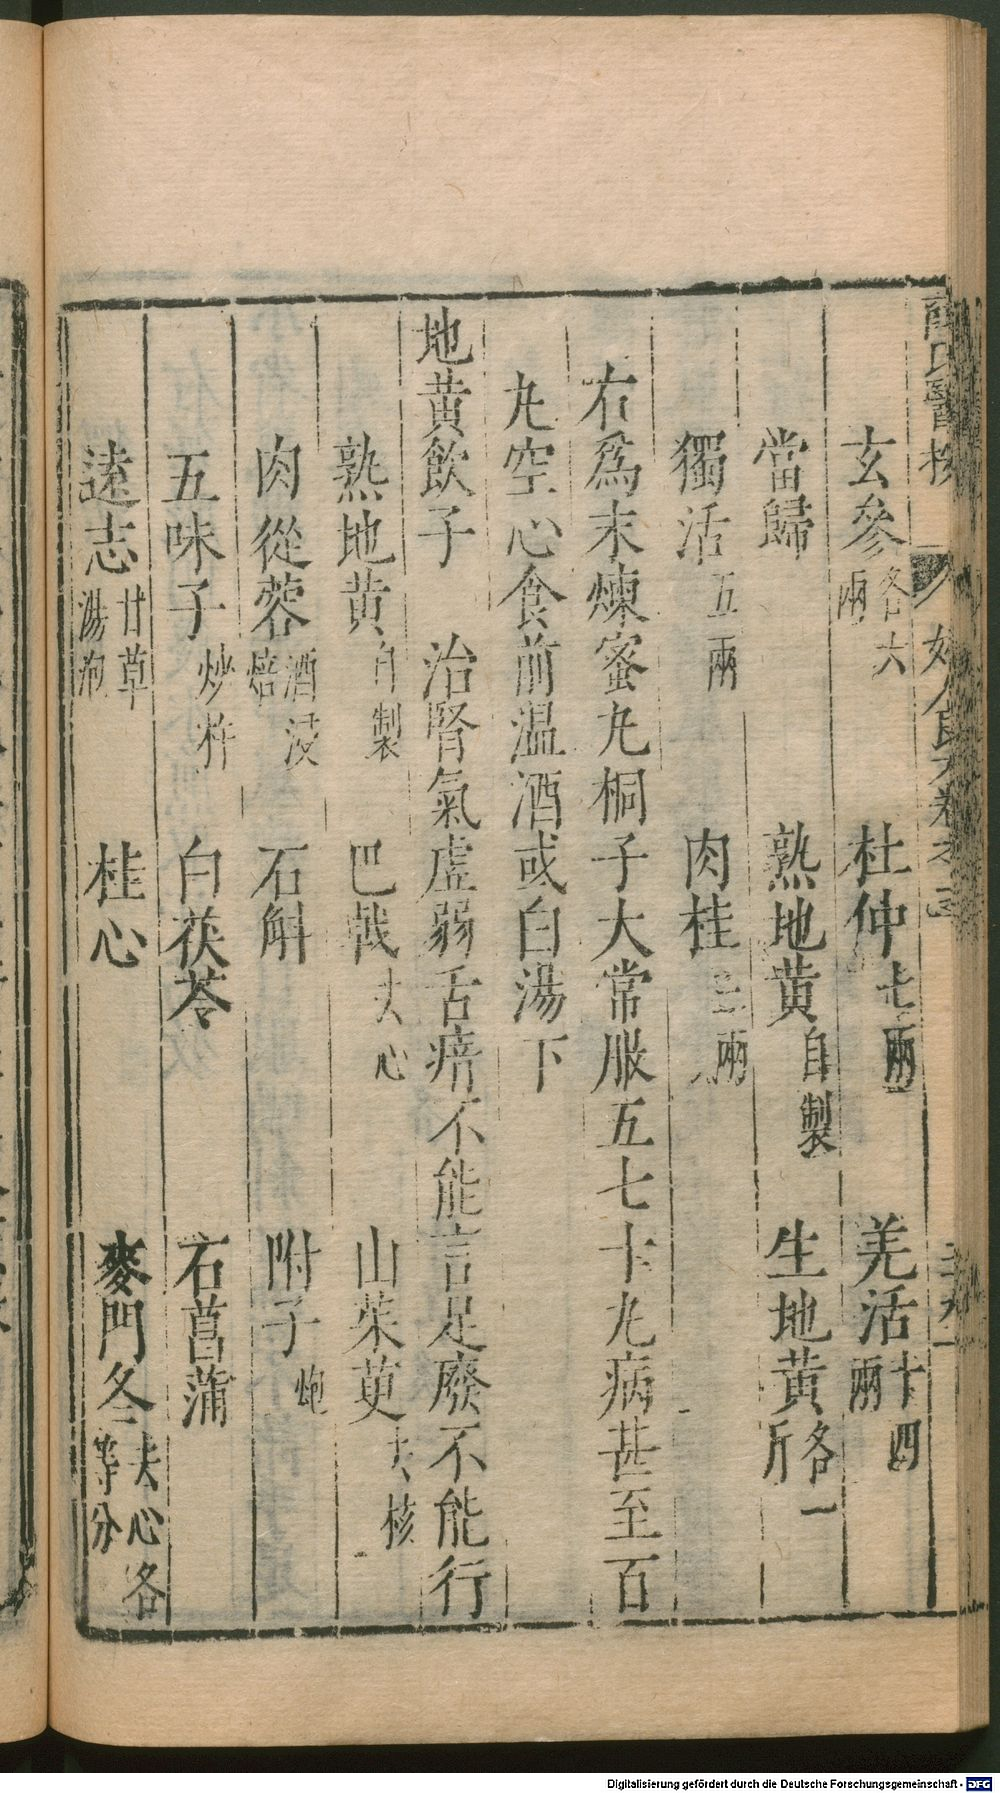 薛氏醫按 婦人良方卷之三
玄參各六兩 杜仲七兩 羌活十四兩
當歸 熟地黄自製 生地黄各一斤
獨活五兩 肉桂三兩
右爲末煉蜜丸桐子大常服五七十丸病甚至百
丸空心食前温酒或白湯下
地黄飲子 治腎氣虛弱舌瘖不能言足廢不能行
熟地黄自製 巴戟去心 山茱萸去核
肉從蓉酒浸焙 石斛 附子炮
五味子炒杵 白茯苓 石菖蒲
遠志甘草湯泡 桂心 麥門冬去心各等分
Digitalisierung gefördert durch die Deutsche Forschungsgemeinschaft - DFG